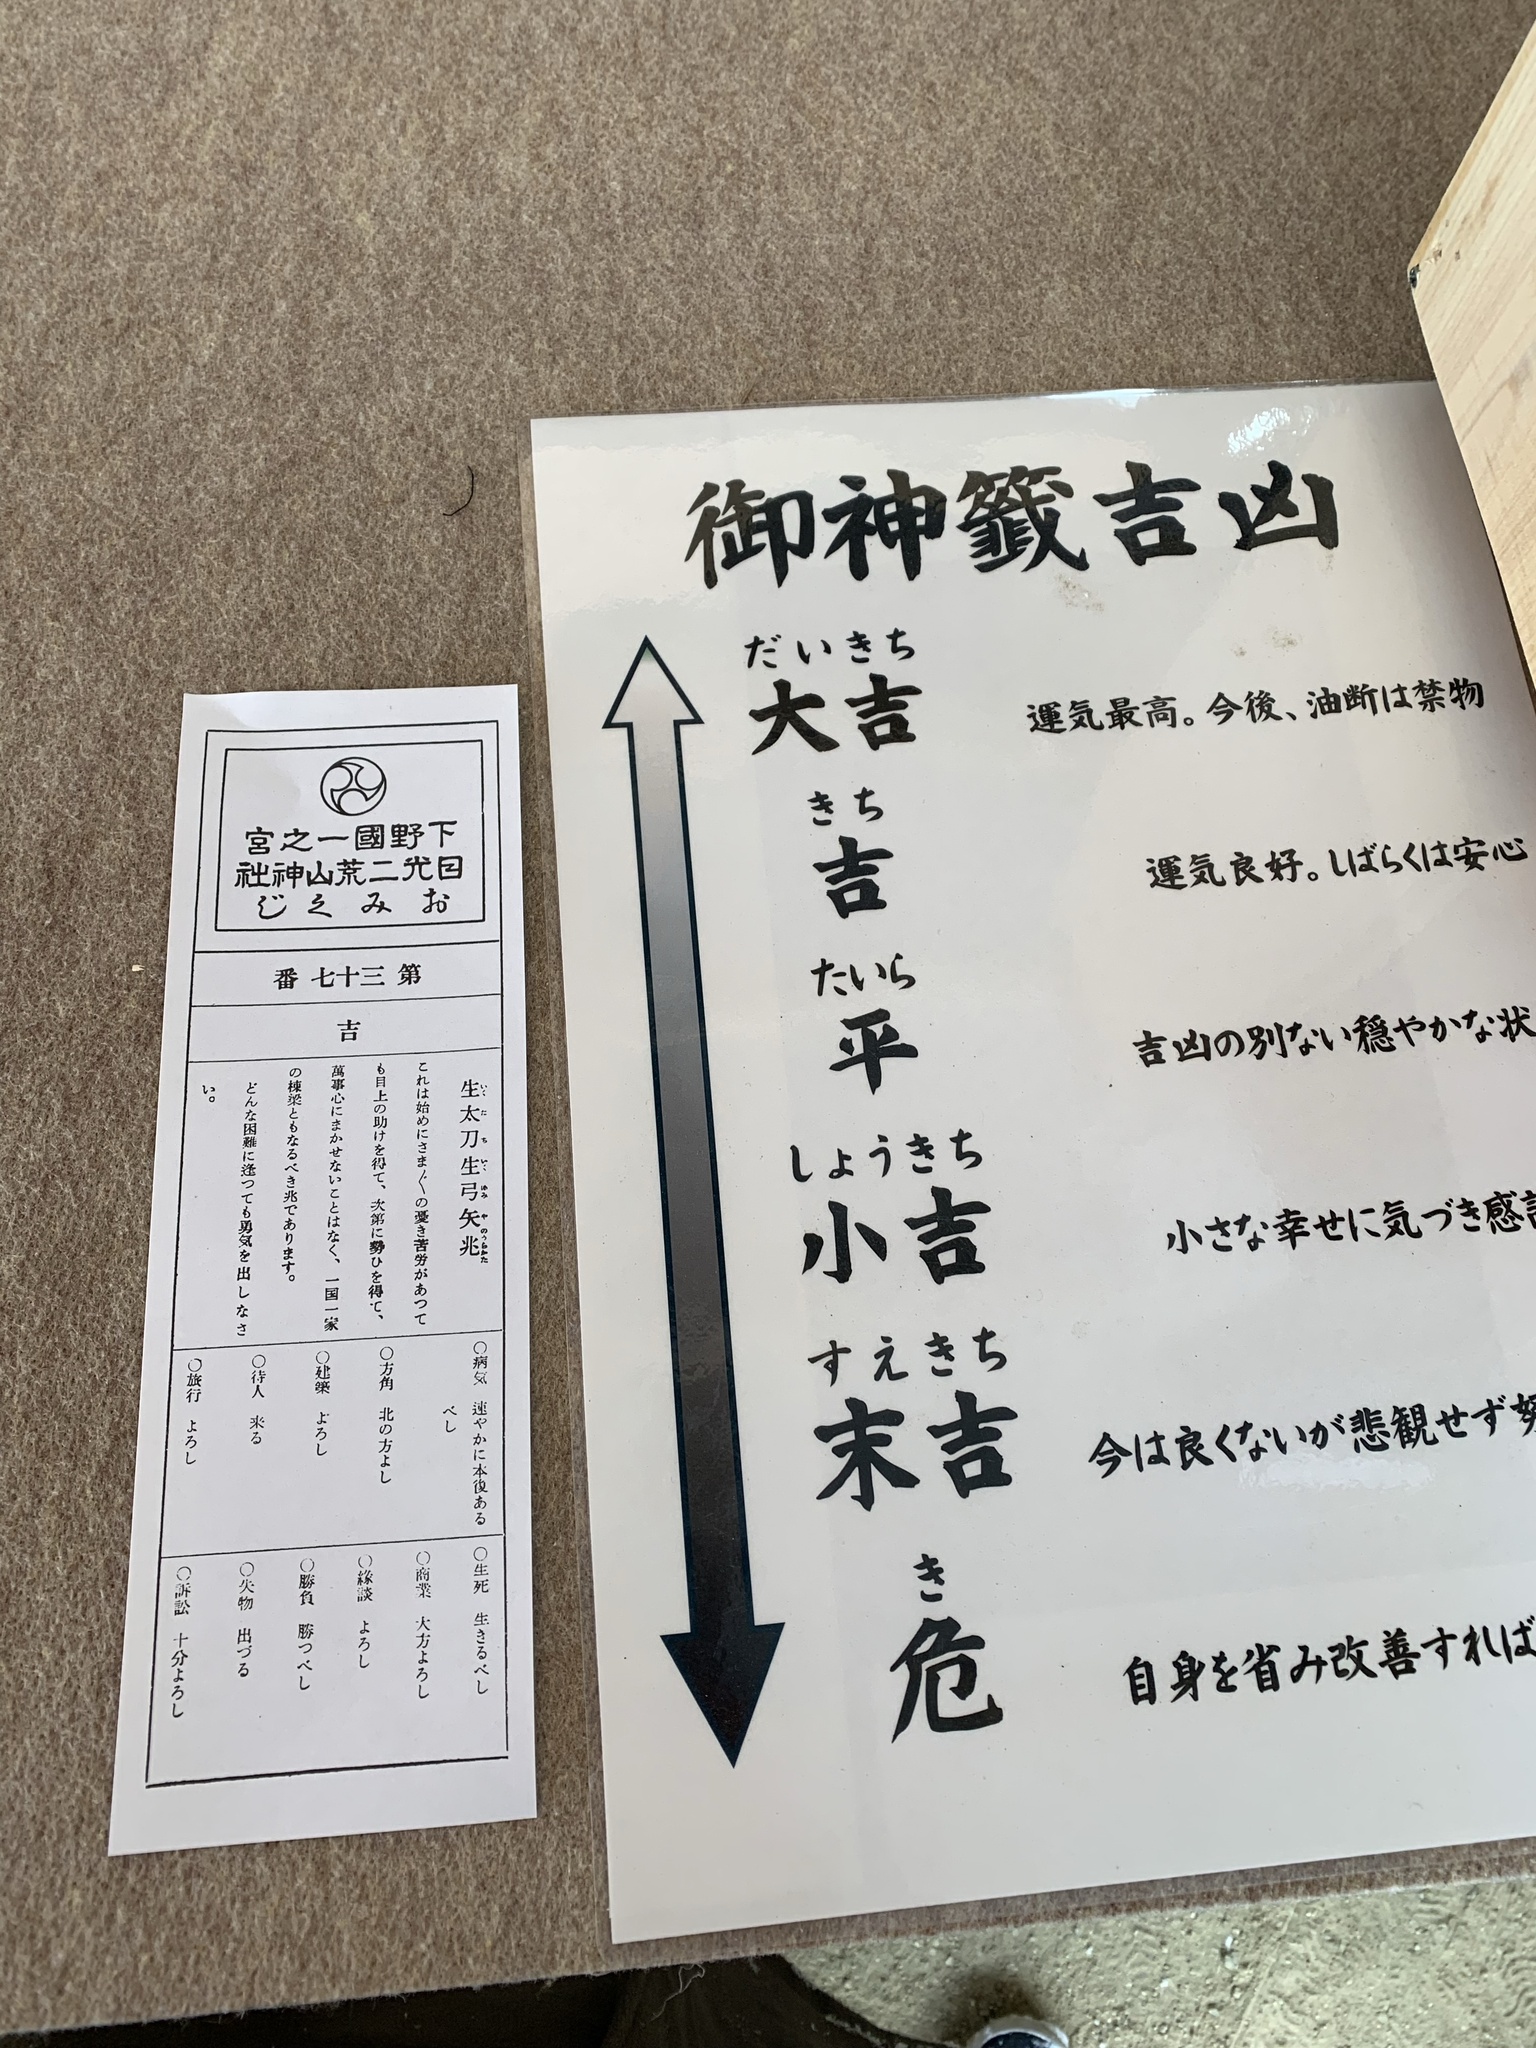 下野國一之宮
日光二荒山神社
おみくじ
第三十七番
吉
生太刀生弓矢兆
いくたちいくゆみやのうらかた
これは始めにさま〴〵の憂き苦労があつて
も目上の助けを得て、次第に勢ひを得て、
萬事心にまかせないことはなく、一国一家
の棟梁ともなるべき兆であります。
どんな困難に逢つても勇気を出しなさ
い。
〇病気 速やかに本復ある
べし
〇方角 北の方よし
〇建築 よろし
〇待人 来る
〇旅行 よろし
〇生死 生きるべし
〇商業 大方よろし
〇縁談 よろし
〇勝負 勝つべし
〇失物 出づる
〇訴訟 十分よろし
御神籤吉凶
だいきち
大吉 運気最高。今後、油断は禁物
きち
吉 運気良好。しばらくは安心
たいら
平 吉凶の別ない穏やかな状
しょうきち
小吉 小さな幸せに気づき感謝
すえきち
末吉 今は良くないが悲観せず努
き
危 自身を省み改善すれば